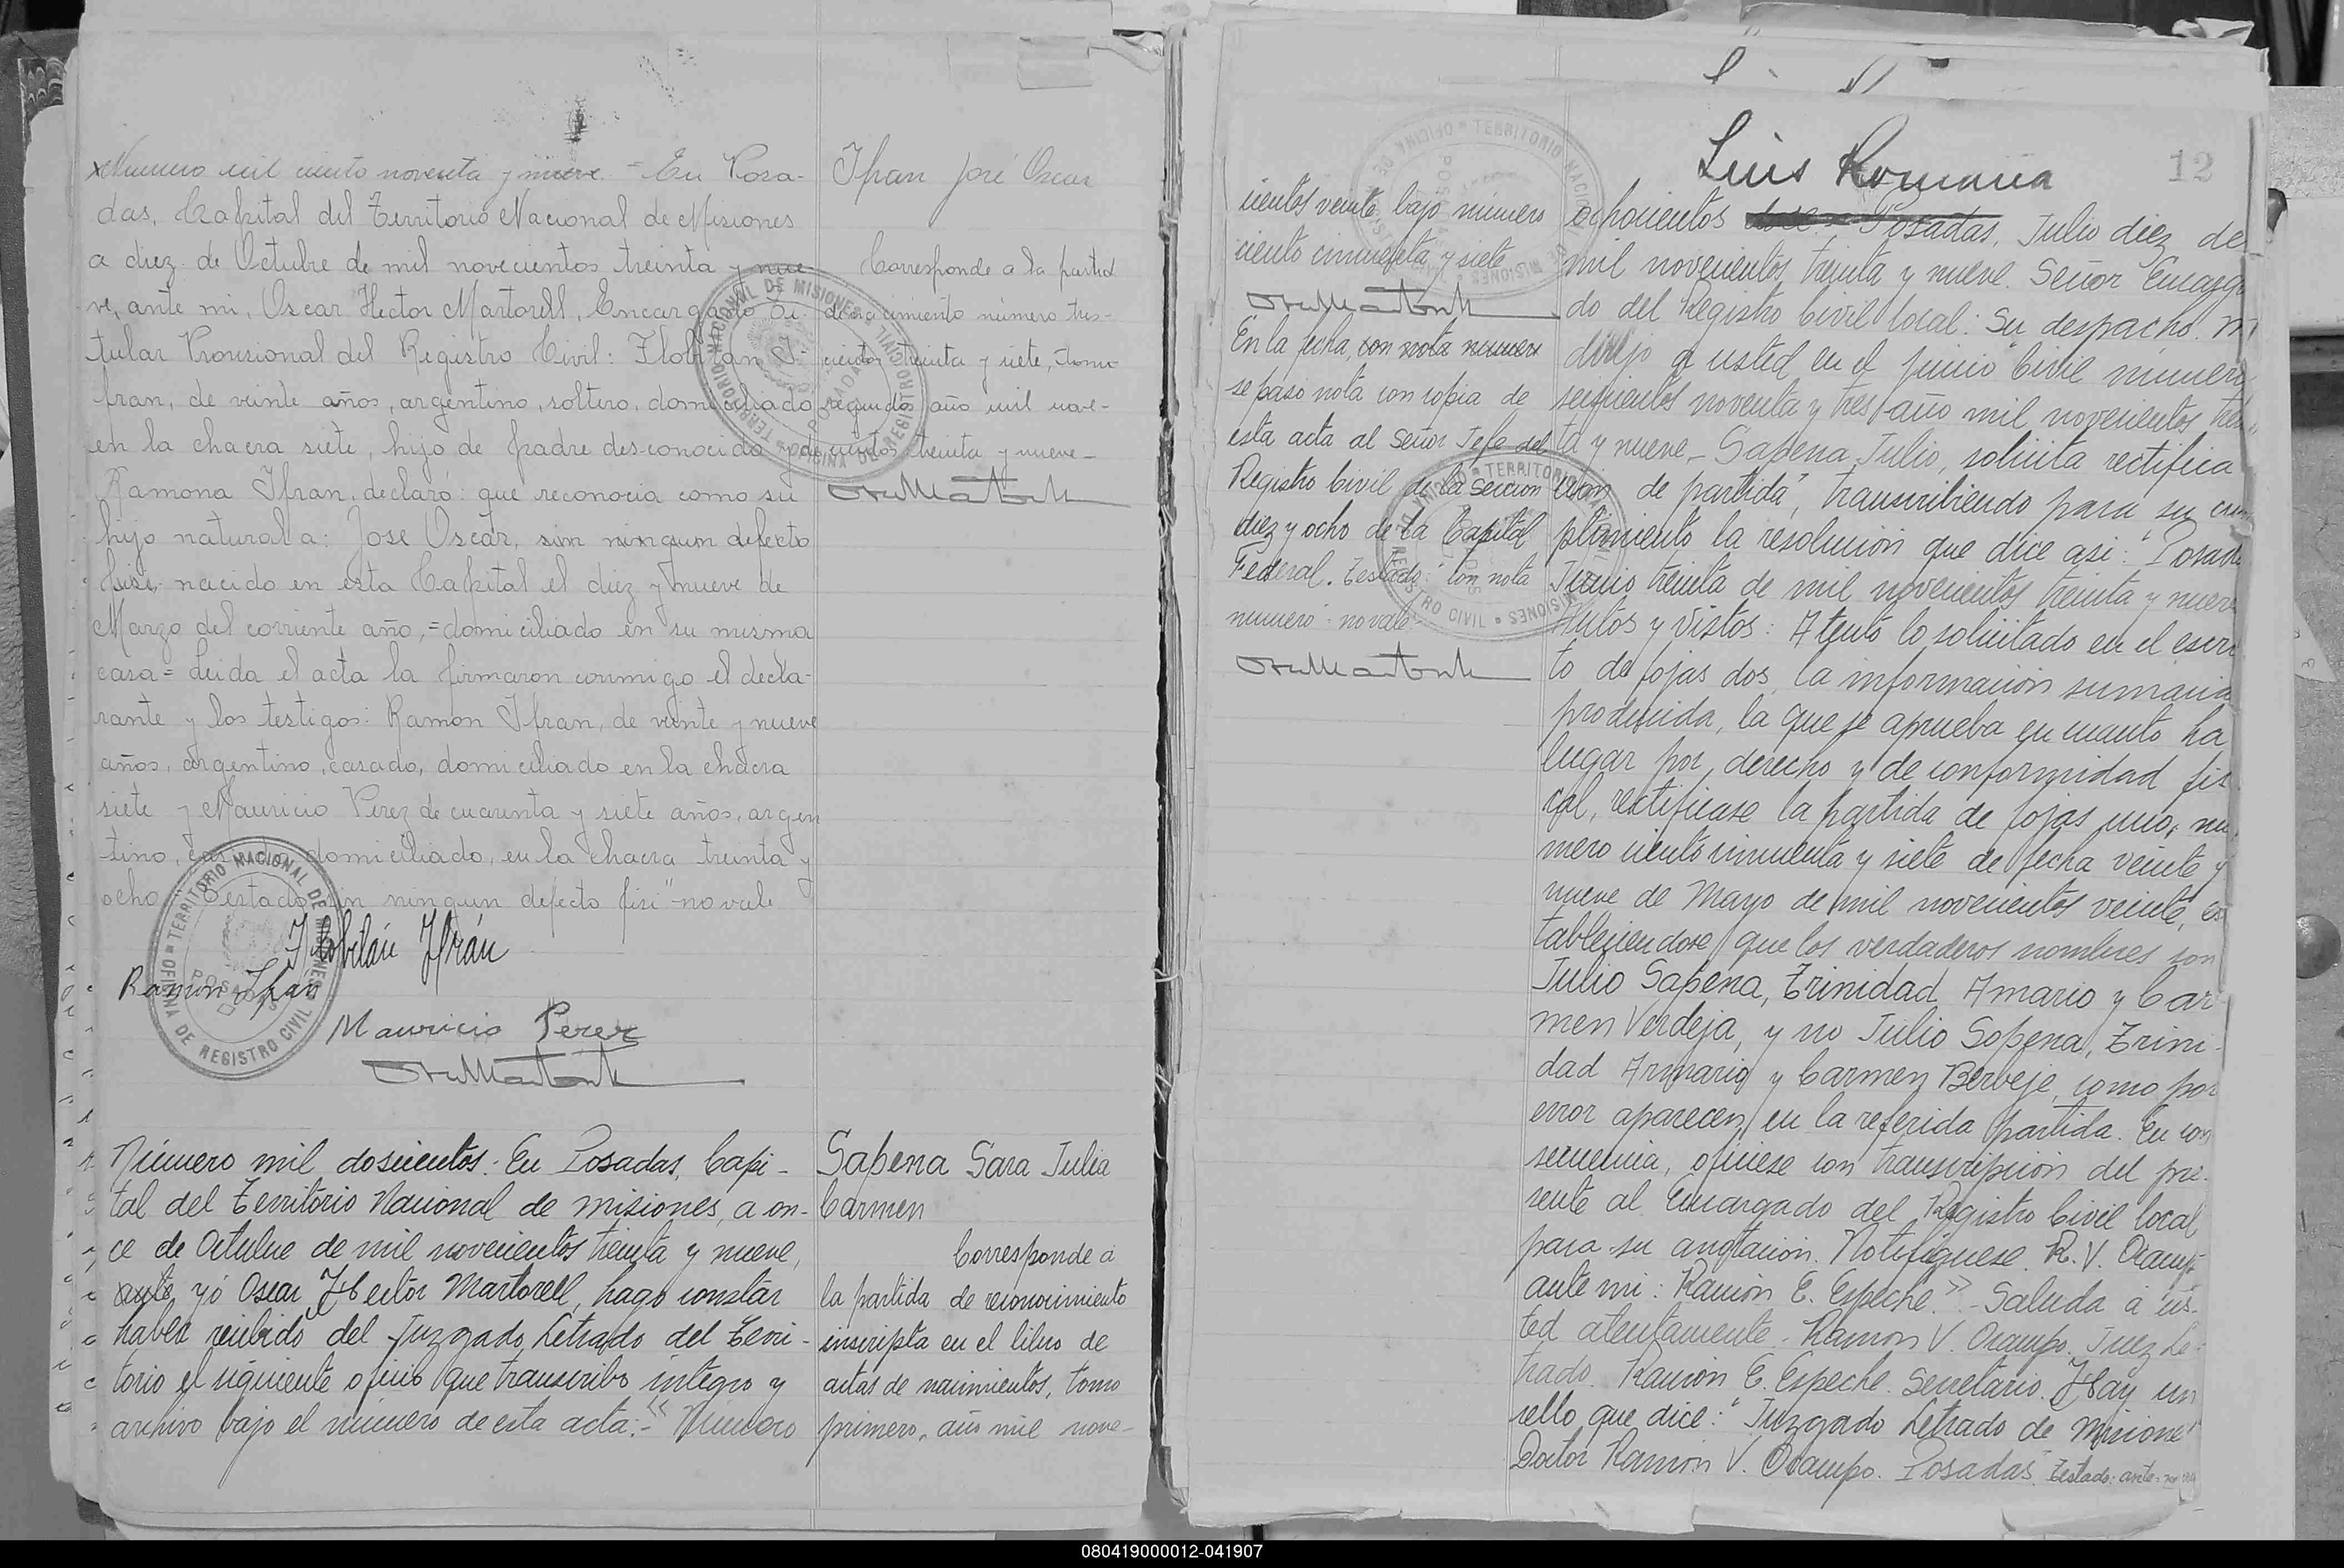 Numero mil ciento noventa y nueve. = En Posa-
das, Capital del Territorio Nacional de Misiones
a diez de Octubre de mil novecientos treinta y nue-
ve, ante mi, Oscar Hector Martorell, Encargado Ti-
tular Provisional del Registro Civil: Flobilan I-
fran, de veinte años, argentino, soltero, domiciliado
en la chacra siete, hijo de padre desconocido y de
Ramona Ifran, declaró: que reconocia como su
hijo natural a: José Oscar, sin ningun defecto
fisi- nacido en esta Capital el diez y nueve de
Marzo del corriente año,= domiciliado en su misma
casa= Leida el acta la firmaron conmigo el decla-
rante y los testigos: Ramon Ifran, de veinte y nueve
años, argentino, casado, domiciliado en la chacra
siete y Mauricio Perez de cuarenta y siete años, argen
tino, casado, domiciliado, en la chacra treinta y
ocho "Testado sin ningun defecto fisi" no vale
Flobilán Ifrán
Ramón Ifrán
Mauricio Perez
Ifran José Oscar
Corresponde a la partid
de nacimiento número tres-
cientos treinta y siete, tomo
segundo año mil nove-
cientos treinta y nueve-
TERRITORIO NACIONAL DE MISIONES
OFICINA DE REGISTRO CIVIL
POSADAS
TERRITORIO NACIONAL DE MISIONES
OFICINA DE REGISTRO CIVIL
POSADAS
Número mil doscientos: En Posadas, Capi-
tal del Territorio Nacional de misiones, a on-
ce de Octubre de mil novecientos treinta y nueve,
ante, yó Oscar Hector Martorell, hago constar
haber recibido del Juzgado Letrado del Terri-
torio el siguiente oficio que transcribo íntegro y
archivo bajo el número de esta acta:- "Número
Sapena Sara Julia
Carmen
Corresponde a
la partida de reconocimiento
inscripta en el libro de
actas de nacimientos, tomo
primero, año mil nove-
Luis Romana
12
cientos veinte, bajo número
ciento cincuenta y siete
En la fecha, con nota numero
se pasó nota con copia de
esta acta al Señor Jefe del
Registro Civil de la Sección
diez y ocho de la Capital
Federal. Testado: "con nota
numero" no vale
TERRITORIO NACIONAL DE MISIONES
OFICINA DE REGISTRO CIVIL
ochocientos doce = Posadas, Julio diez de
mil novecientos treinta y nueve. Señor Encarga
do del Registro Civil local: Su despacho. M
dirijo a usted en el juicio Civil número
seiscientos noventa y tres año mil novecientos trein
ta y nueve- Sapena Julio, solicita rectifica
ción de partida", transcribiendo para su cum
plimiento la resolución que dice asi: "Posada
Junio treinta de mil novecientos treinta y nuev
Autos y Vistos: Atento lo solicitado en el escri
to de fojas dos, la información sumaria
producida, la que se aprueba en cuanto ha
lugar por derecho y de conformidad fis
cal, rectificase la partida de fojas uno, nú
mero ciento cincuenta y siete de fecha veinte y
nueve de Mayo de mil novecientos veinte, es
tableciendose que los verdaderos nombres son
Julio Sapena, Trinidad Amario y Car
men Verdeja, y no Julio Sopena, Trini-
dad Armario y Carmen Berveje, como por
error aparecen en la referida partida. En con
secuencia, ofíciese con transcripción del pre-
sente al Encargado del Registro Civil local
para su anotación. Notifíquese. R. V. Ocamp
ante mi: Ramón E. Espeche." - Saluda a us-
ted atentamente - Ramon V. Ocampo. Juez Le-
trado. Ramón E. Espeche. Secretario. Hay un
sello que dice: "Juzgado Letrado de Misione
Doctor Ramón V. Ocampo. Posadas". Testado: ante= no vale
080419000012-041907